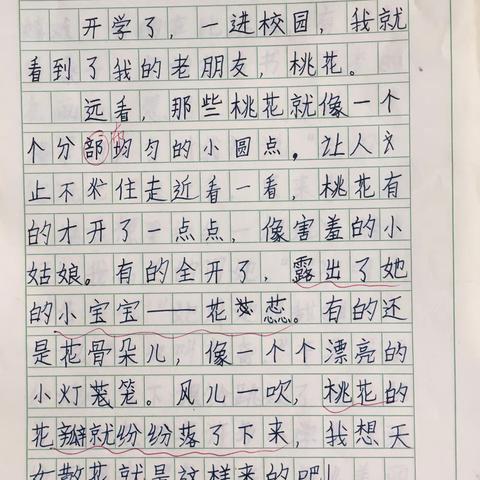 开学了，一进校园，我就
看到了我的老朋友，桃花。
远看，那些桃花就像一个
布
个分部均匀的小圆点，让人
止不住走近看一看，桃花有
的才开了一点点，像害羞的小
姑娘。有的全开了，露出了她
的小宝宝——花蕊。有的还
是花骨朵儿，像一个个漂亮的
小灯笼。风儿一吹，桃花的
花瓣就纷纷落了下来，我想天
女散花就是这样来的吧！